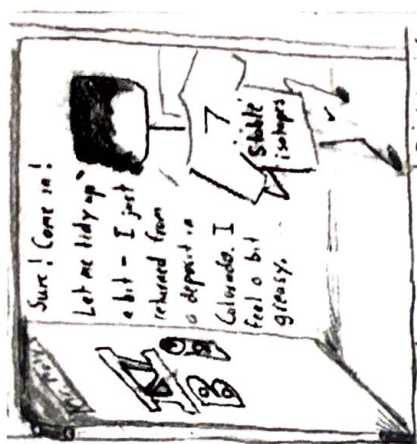 Sure! Come in!
Let me tidy up
a bit – I just
returned from
a deposit in
Colorado. I
feel a bit
greasy.
7
Stable
isotopes